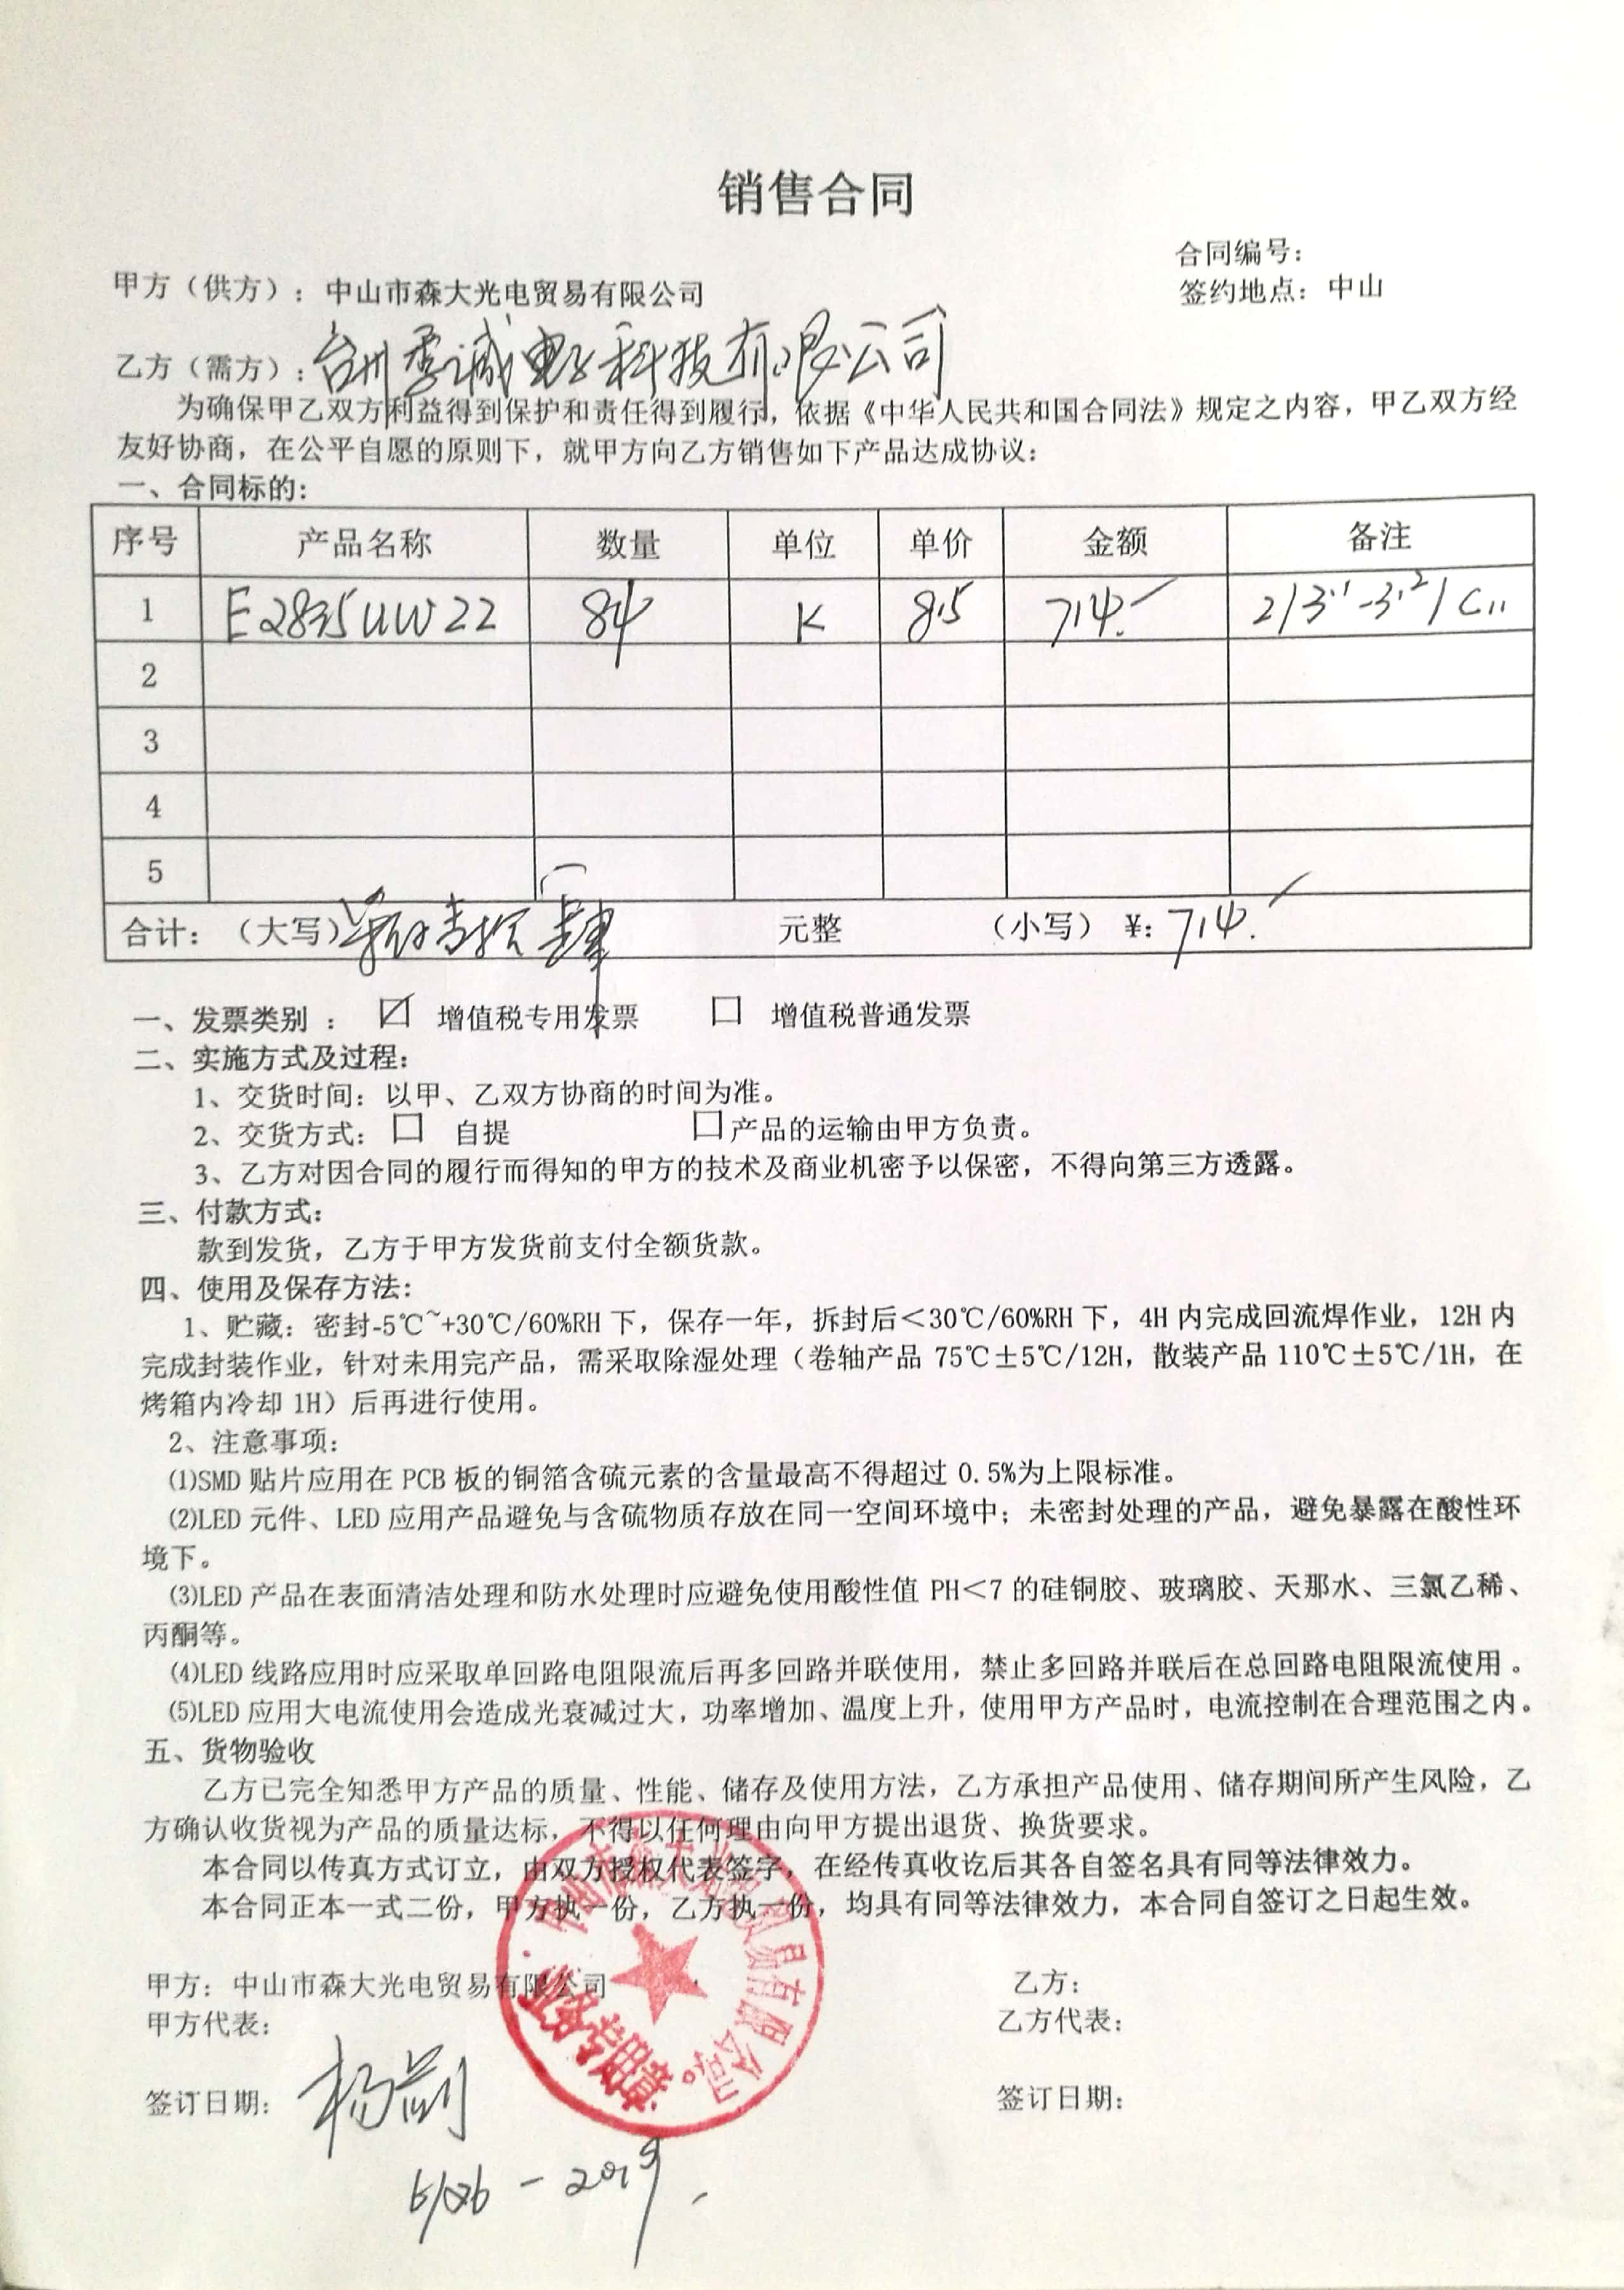 销售合同
合同编号：
甲方（供方）：中山市森大光电贸易有限公司
签约地点：中山
乙方（需方）：台州 诚电子科技有限公司
为确保甲乙双方利益得到保护和责任得到履行，依据《中华人民共和国合同法》规定之内容，甲乙双方经
友好协商，在公平自愿的原则下，就甲方向乙方销售如下产品达成协议：
一、合同标的：
序号 产品名称 数量 单位 单价 金额 备注
1 E2835UW22 84 K 8.5 714. 2/3.1-3.2/C11
2
3
4
5
合计：（大写）柒佰壹拾肆 元整 （小写）¥：714.
一、发票类别 ： ☑ 增值税专用发票 □ 增值税普通发票
二、实施方式及过程：
1、交货时间：以甲、乙双方协商的时间为准。
2、交货方式：□ 自提 □产品的运输由甲方负责。
3、乙方对因合同的履行而得知的甲方的技术及商业机密予以保密，不得向第三方透露。
三、付款方式：
款到发货，乙方于甲方发货前支付全额货款。
四、使用及保存方法：
1、贮藏：密封-5℃~+30℃/60%RH 下，保存一年，拆封后＜30℃/60%RH 下，4H 内完成回流焊作业，12H 内
完成封装作业，针对未用完产品，需采取除湿处理（卷轴产品 75℃±5℃/12H，散装产品 110℃±5℃/1H，在
烤箱内冷却 1H）后再进行使用。
2、注意事项：
⑴SMD 贴片应用在 PCB 板的铜箔含硫元素的含量最高不得超过 0.5%为上限标准。
⑵LED 元件、LED 应用产品避免与含硫物质存放在同一空间环境中；未密封处理的产品，避免暴露在酸性环
境下。
⑶LED 产品在表面清洁处理和防水处理时应避免使用酸性值 PH＜7 的硅铜胶、玻璃胶、天那水、三氯乙稀、
丙酮等。
⑷LED 线路应用时应采取单回路电阻限流后再多回路并联使用，禁止多回路并联后在总回路电阻限流使用 。
⑸LED 应用大电流使用会造成光衰减过大，功率增加、温度上升，使用甲方产品时，电流控制在合理范围之内。
五、货物验收
乙方已完全知悉甲方产品的质量、性能、储存及使用方法，乙方承担产品使用、储存期间所产生风险，乙
方确认收货视为产品的质量达标，不得以任何理由向甲方提出退货、换货要求。
本合同以传真方式订立，由双方授权代表签字，在经传真收讫后其各自签名具有同等法律效力。
本合同正本一式二份，甲方执一份，乙方执一份，均具有同等法律效力，本合同自签订之日起生效。
甲方：中山市森大光电贸易有限公司
乙方：
甲方代表：
乙方代表：
签订日期：
签订日期：
中山市森大光电贸易有限公司
业务专用章
-2019.